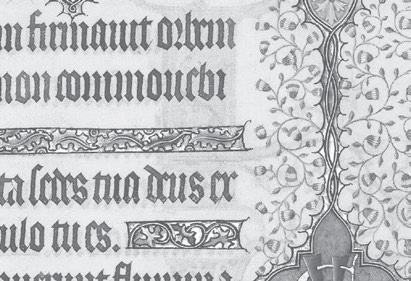 firmauit orbem
non commouebi
ta sedes tua deus ex
ulo tu es.